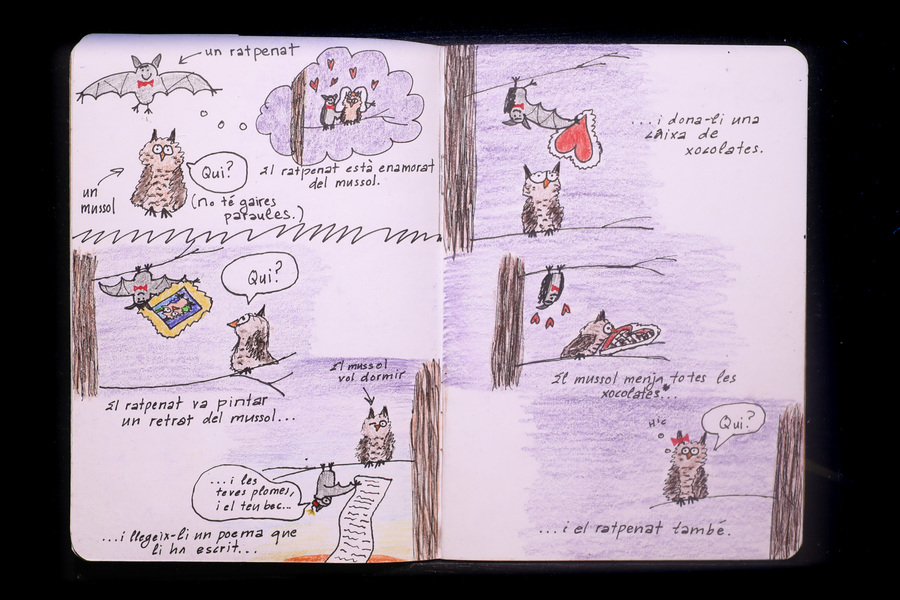 un ratpenat
un
mussol
Qui?
(No té gaires
paraules.)
El ratpenat està enamorat
del mussol.
Qui?
El ratpenat va pintar
un retrat del mussol...
El mussol
vol dormir
...i les
teves plomes,
i el teu bec...
...i llegeix-li un poema que
li ha escrit...
...i dona-li una
caixa de
xocolates.
El mussol menja totes les
xocolates...
Hic
Qui?
...i el ratpenat també.